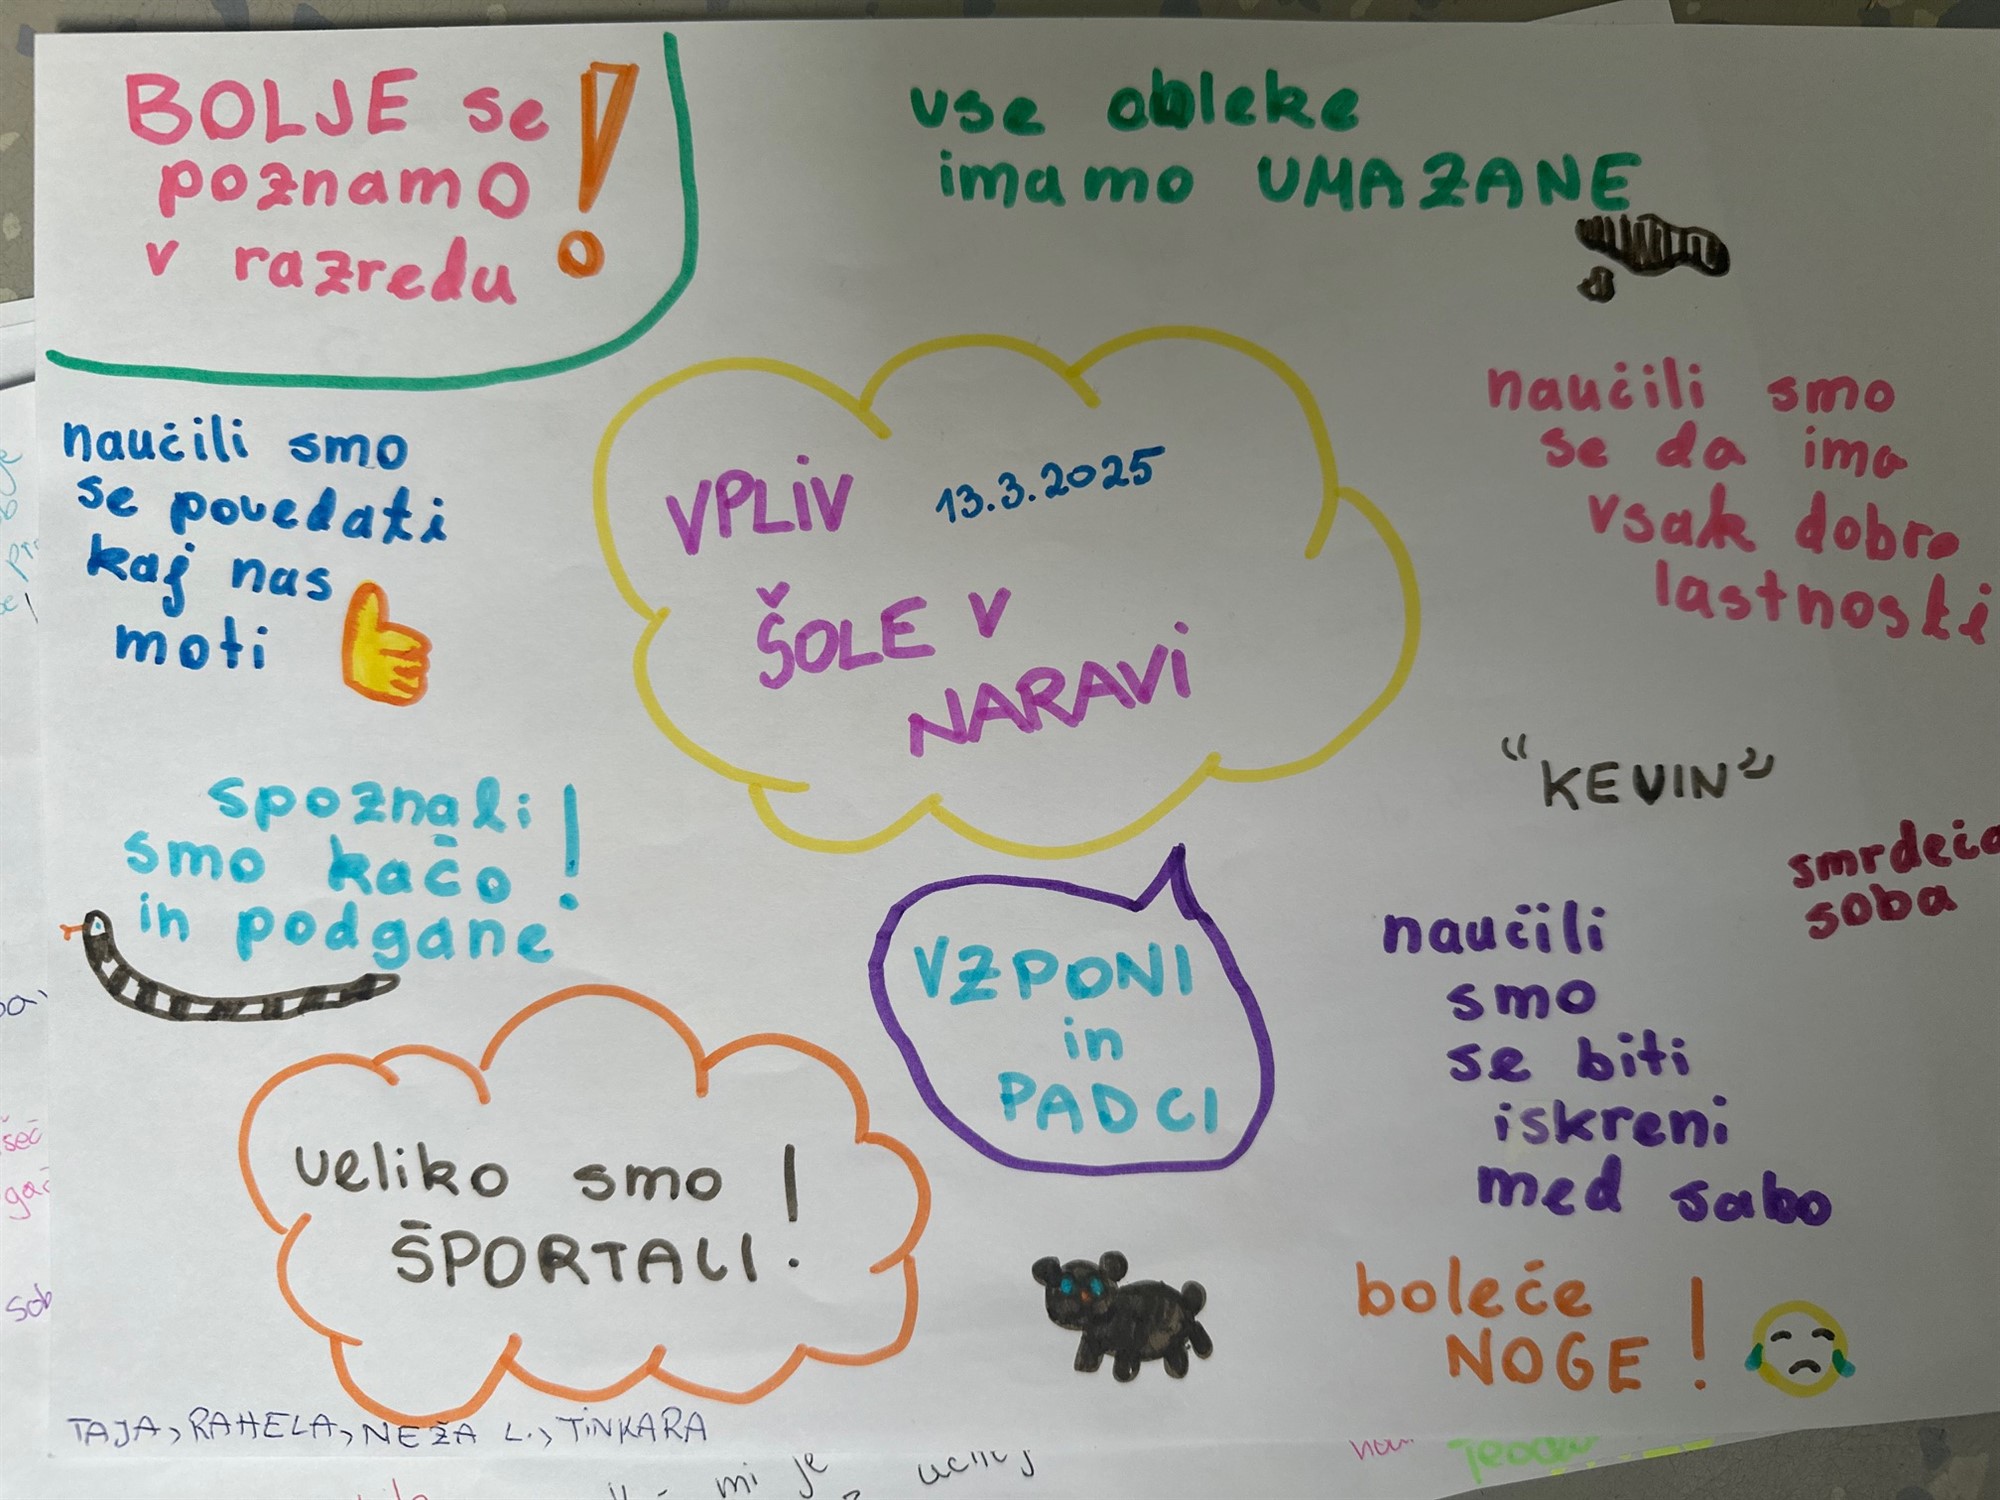 BOLJE se !
poznamo
v razredu
vse obleke
imamo UMAZANE
naučili smo
se povedati
kaj nas
moti
VPLIV 13.3.2025
ŠOLE V
NARAVI
naučili smo
se da ima
vsak dobre
lastnosti
"KEVIN"
smrdeča
soba
spoznali !
smo kačo
in podgane
VZPONI
in
PADCI
naučili
smo
se biti
iskreni
med sabo
veliko smo !
ŠPORTALI
boleče !
NOGE
TAJA, RAHELA, NEŽA L., TINKARA
mi je